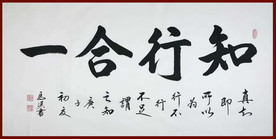 知行合一
真知即所以為行不行不足謂之知
庚子初